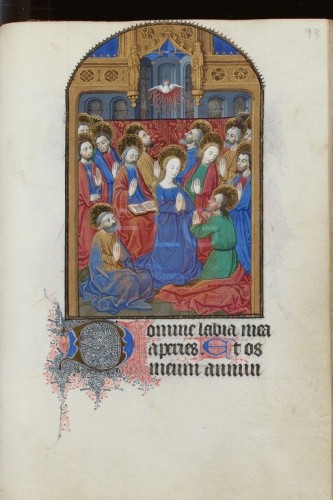 93
Domine labia mea
aperies Et os
meum annun